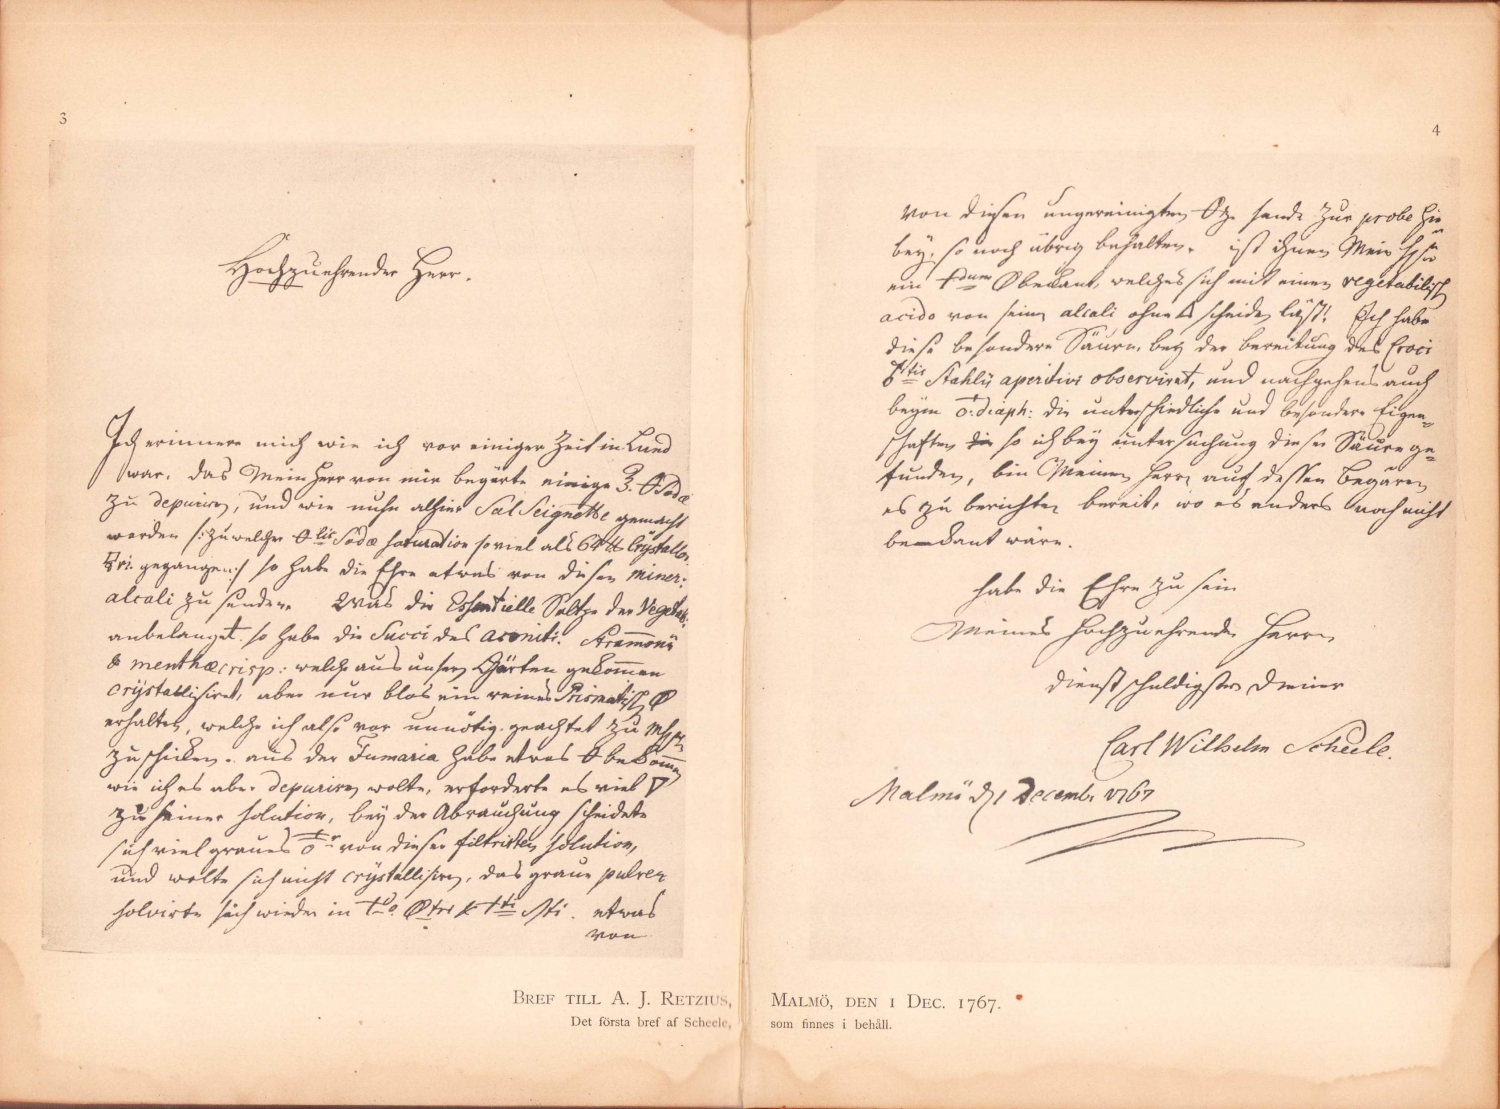 3
Hochzuehrender Herr.
Ich erinnere mich wie ich vor einiger Zeit in Lund
war, das Mein Herr von mir begärte einige Sodæ
zu depuriren, und wie nuhn alhier Sal Seignette gemacht
worden /: zu welcher Sodæ saturation so viel als 64 ℔ Crystallor.
gegangen :/ so habe die Ehre etwas von diesen miner:
alcali zu senden. Was die Essentielle Saltze der Vegetab:
anbelanget, so habe die Succi des aconiti:
& menthæ crisp: welche aus unsern Gärten gekommen
crystallisiret, aber nur blos ein reines Prismatisch
erhalten, welche ich also vor unnötig geachtet zu
zu schicken. aus der Fumaria habe etwas bekommen
wie ich es aber depuriren wolte, erforderte es viel
zu seiner solution, bey der Abrauchung scheidete
sich viel graues von dieser filtrirten solution,
und wolte sich nicht crystallisiren, das graue pulver
solvirte sich wieder in etwas
von
4
von diesen ungereinigten sende zur probe hie
bey, so noch übrig behalten. ist ihnen Mein
ein bekant, welches sich mit einen vegetabilisch
acido von seinen alcali ohne scheiden läst! Ich habe
diese besondere Säure, bey der bereitung des Croci
Stahlii aperitivi observiret, und nachgehens auch
beym diaph: die unterschiedliche und besondere Eigen=
schaften so ich bey untersuchung dieser Säure ge=
funden, bin Meinen Herrn auf dessen Begären
es zu berichten bereit, wo es anders noch nicht
bekant wäre.
habe die Ehre zu sein
Meines hochzuehrenden Herrn
dienst schuldigster Diener
Carl Wilhelm Scheele.
Malmö d 1 Decembr 1767
Bref till A. J. Retzius,
Det första bref af Scheele,
Malmö, den 1 Dec. 1767.
som finnes i behåll.